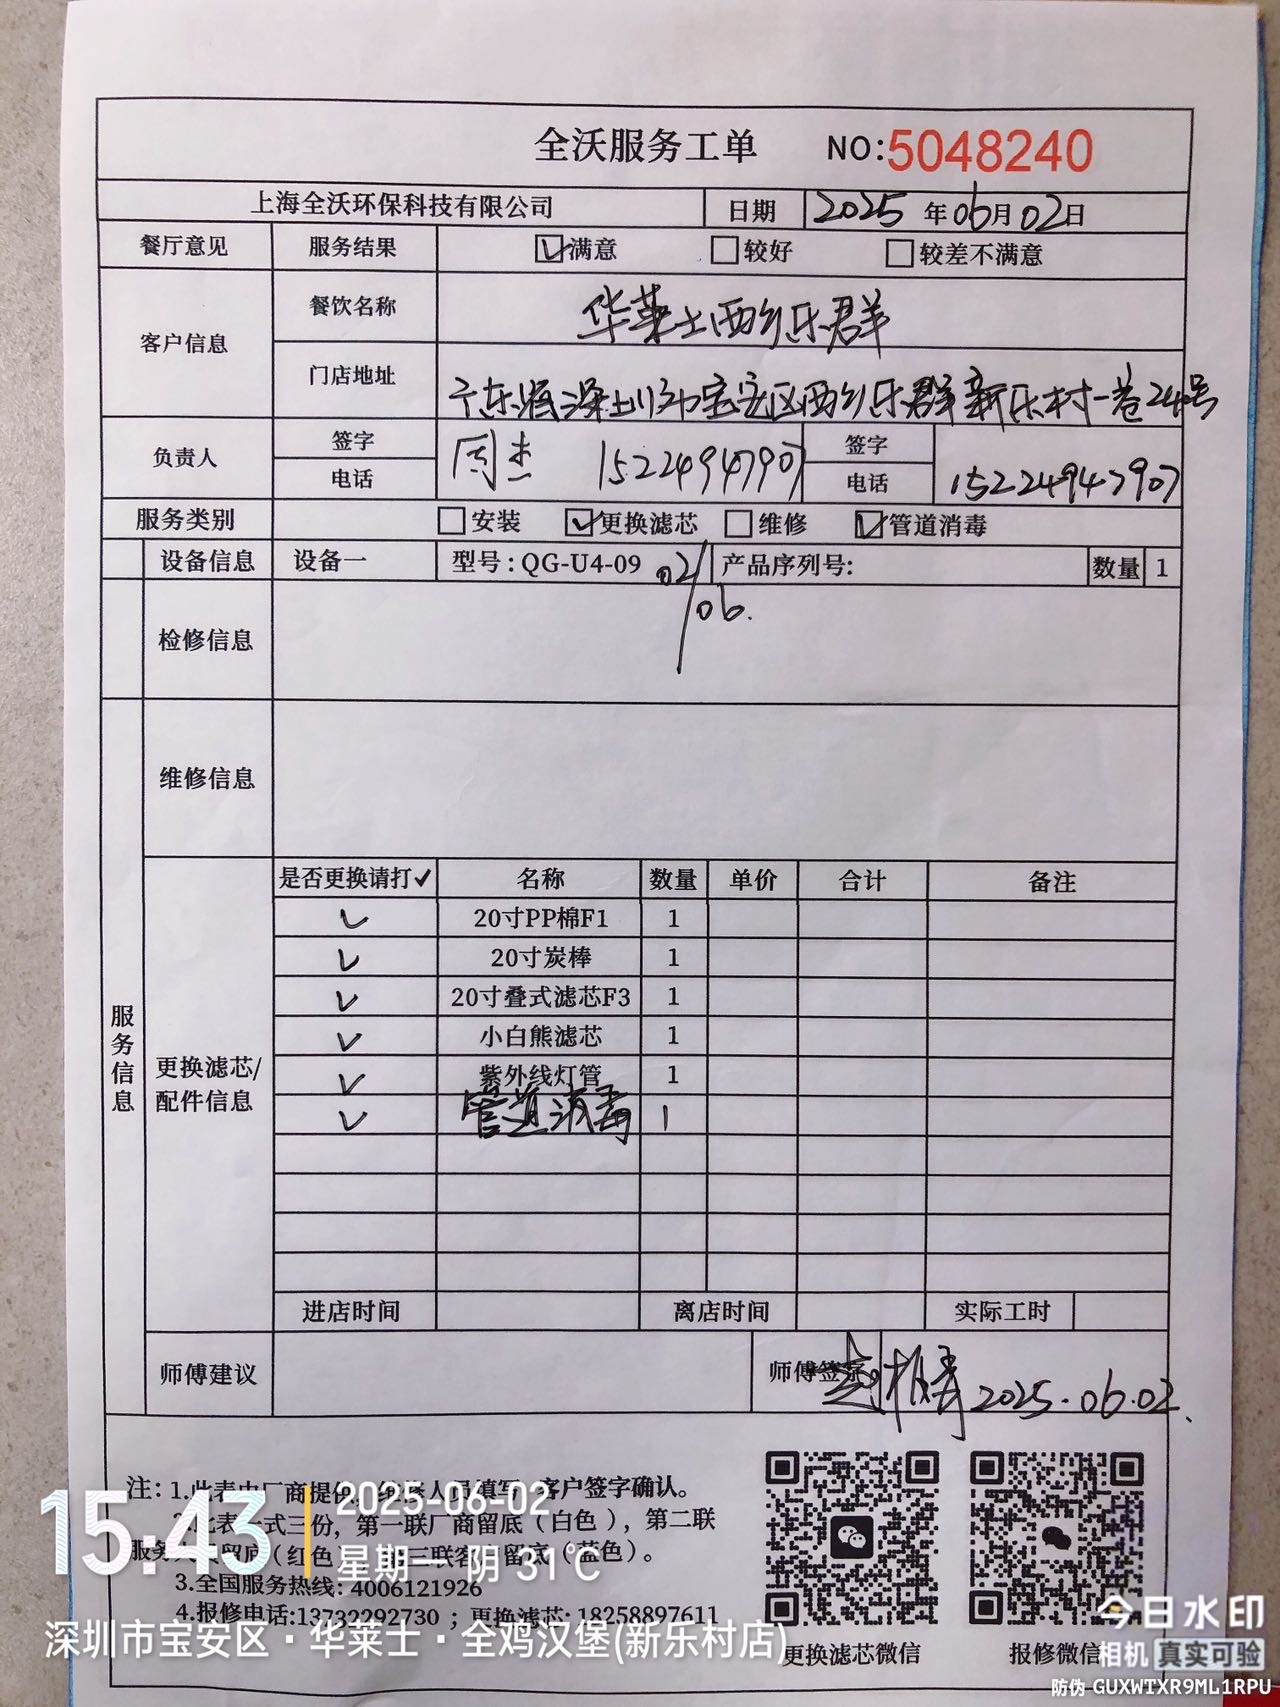 全沃服务工单 NO:5048240
上海全沃环保科技有限公司 日期 2025 年 06 月 02 日
餐厅意见 服务结果 ☑满意 □较好 □较差不满意
客户信息 餐饮名称 华莱士西乡乐群
门店地址 广东省深圳市宝安区西乡乐群新乐村一巷24号
负责人 签字 周杰 15224947907 签字
电话 电话 15224947907
服务类别 □安装 ☑更换滤芯 □维修 ☑管道消毒
设备信息 设备一 型号：QG-U4-09 产品序列号: 数量 1
02/06.
检修信息
维修信息
服务信息
更换滤芯/
配件信息
是否更换请打✓ 名称 数量 单价 合计 备注
✓ 20寸PP棉F1 1
✓ 20寸炭棒 1
✓ 20寸叠式滤芯F3 1
✓ 小白熊滤芯 1
✓ 紫外线灯管 1
✓ 管道消毒 1
进店时间 离店时间 实际工时
师傅建议 师傅签字 2025.06.02.
注：1.此表由厂商提供，人员填写，客户签字确认。
2.此表一式三份，第一联厂商留底（白色），第二联
服务人员留底（红色），第三联客户留底（蓝色）。
3.全国服务热线：4006121926
4.报修电话:13732292730；更换滤芯:18258897611
更换滤芯微信 报修微信
15:43 2025-06-02
星期一 阴 31℃
深圳市宝安区·华莱士·全鸡汉堡(新乐村店)
今日水印
相机 真实可验
防伪 GUXWTXR9ML1RPU